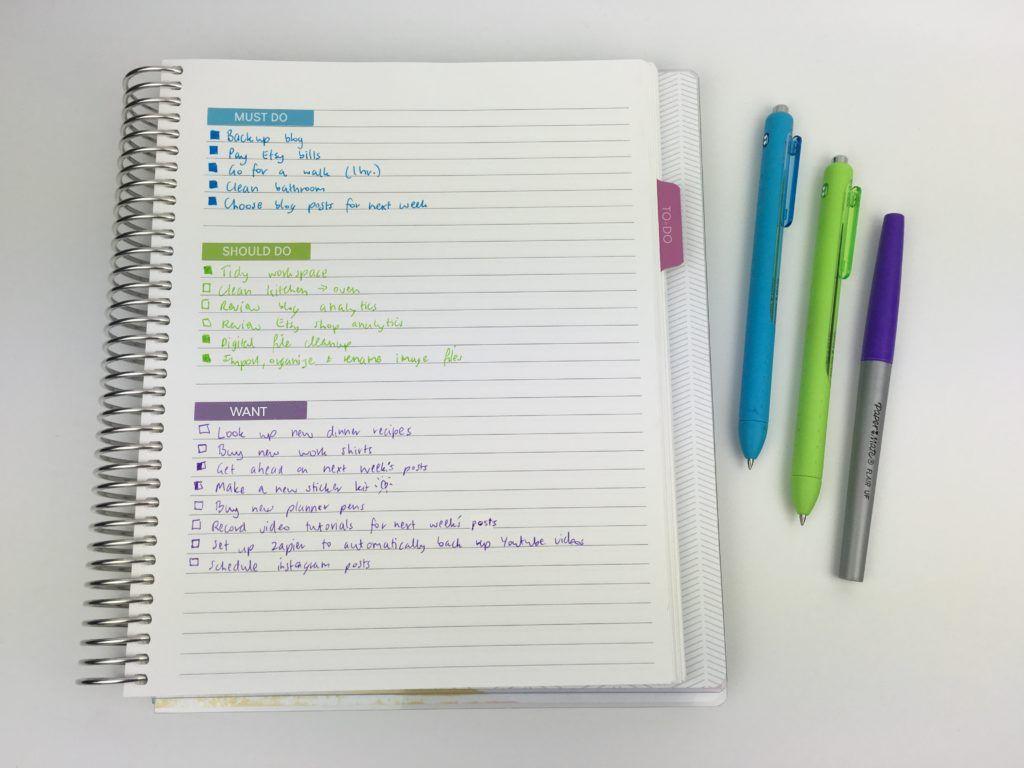 MUST DO
Backup blog
Pay Etsy bills
Go for a walk (1hr.)
Clean bathroom
Choose blog posts for next week
TO-DO
SHOULD DO
Tidy workspace
Clean kitchen → oven
Review blog analytics
Review Etsy shop analytics
Digital file cleanup
Import, organize + rename image files
WANT
Look up new dinner recipes
Buy new work shirts
Get ahead on next week's posts
Make a new sticker kit
Buy new planner pens
Record video tutorials for next week's posts
Set up Zapier to automatically back up Youtube videos
Schedule instagram posts
Paper:Mate® FLAIR UF